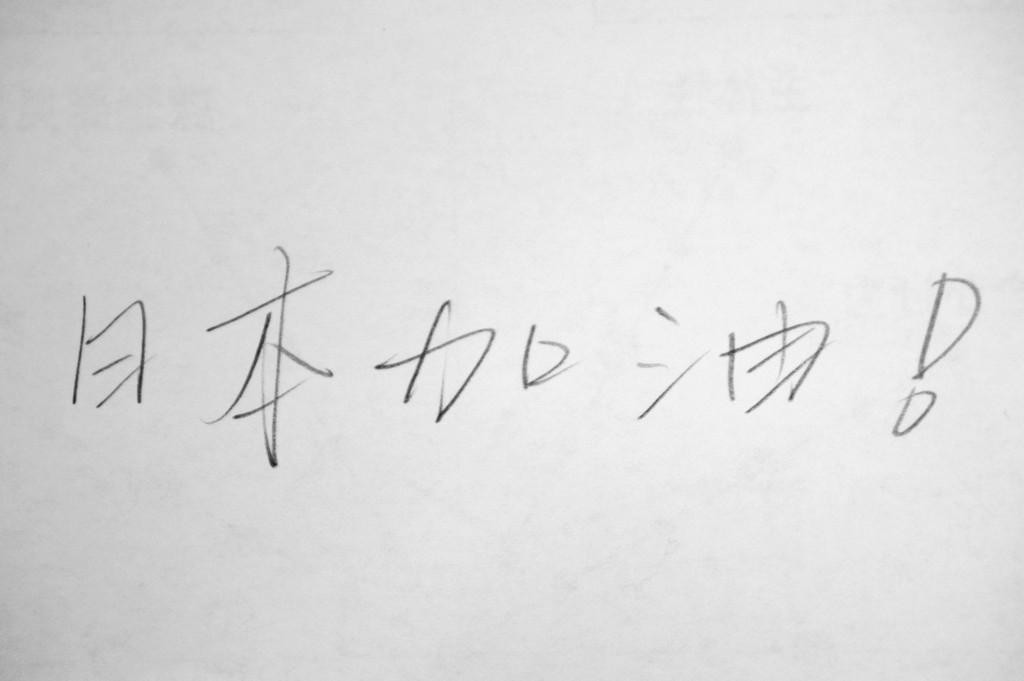 日本加油！